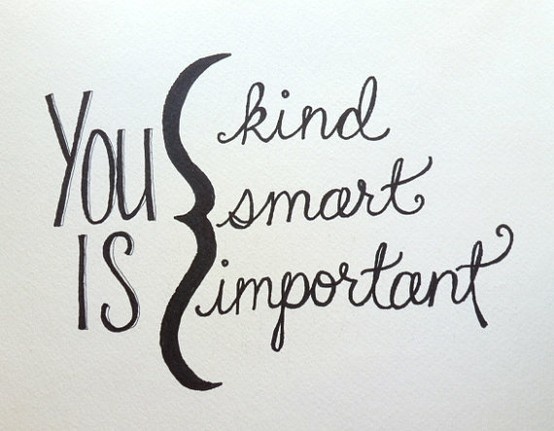 YOU
IS
kind
smart
important